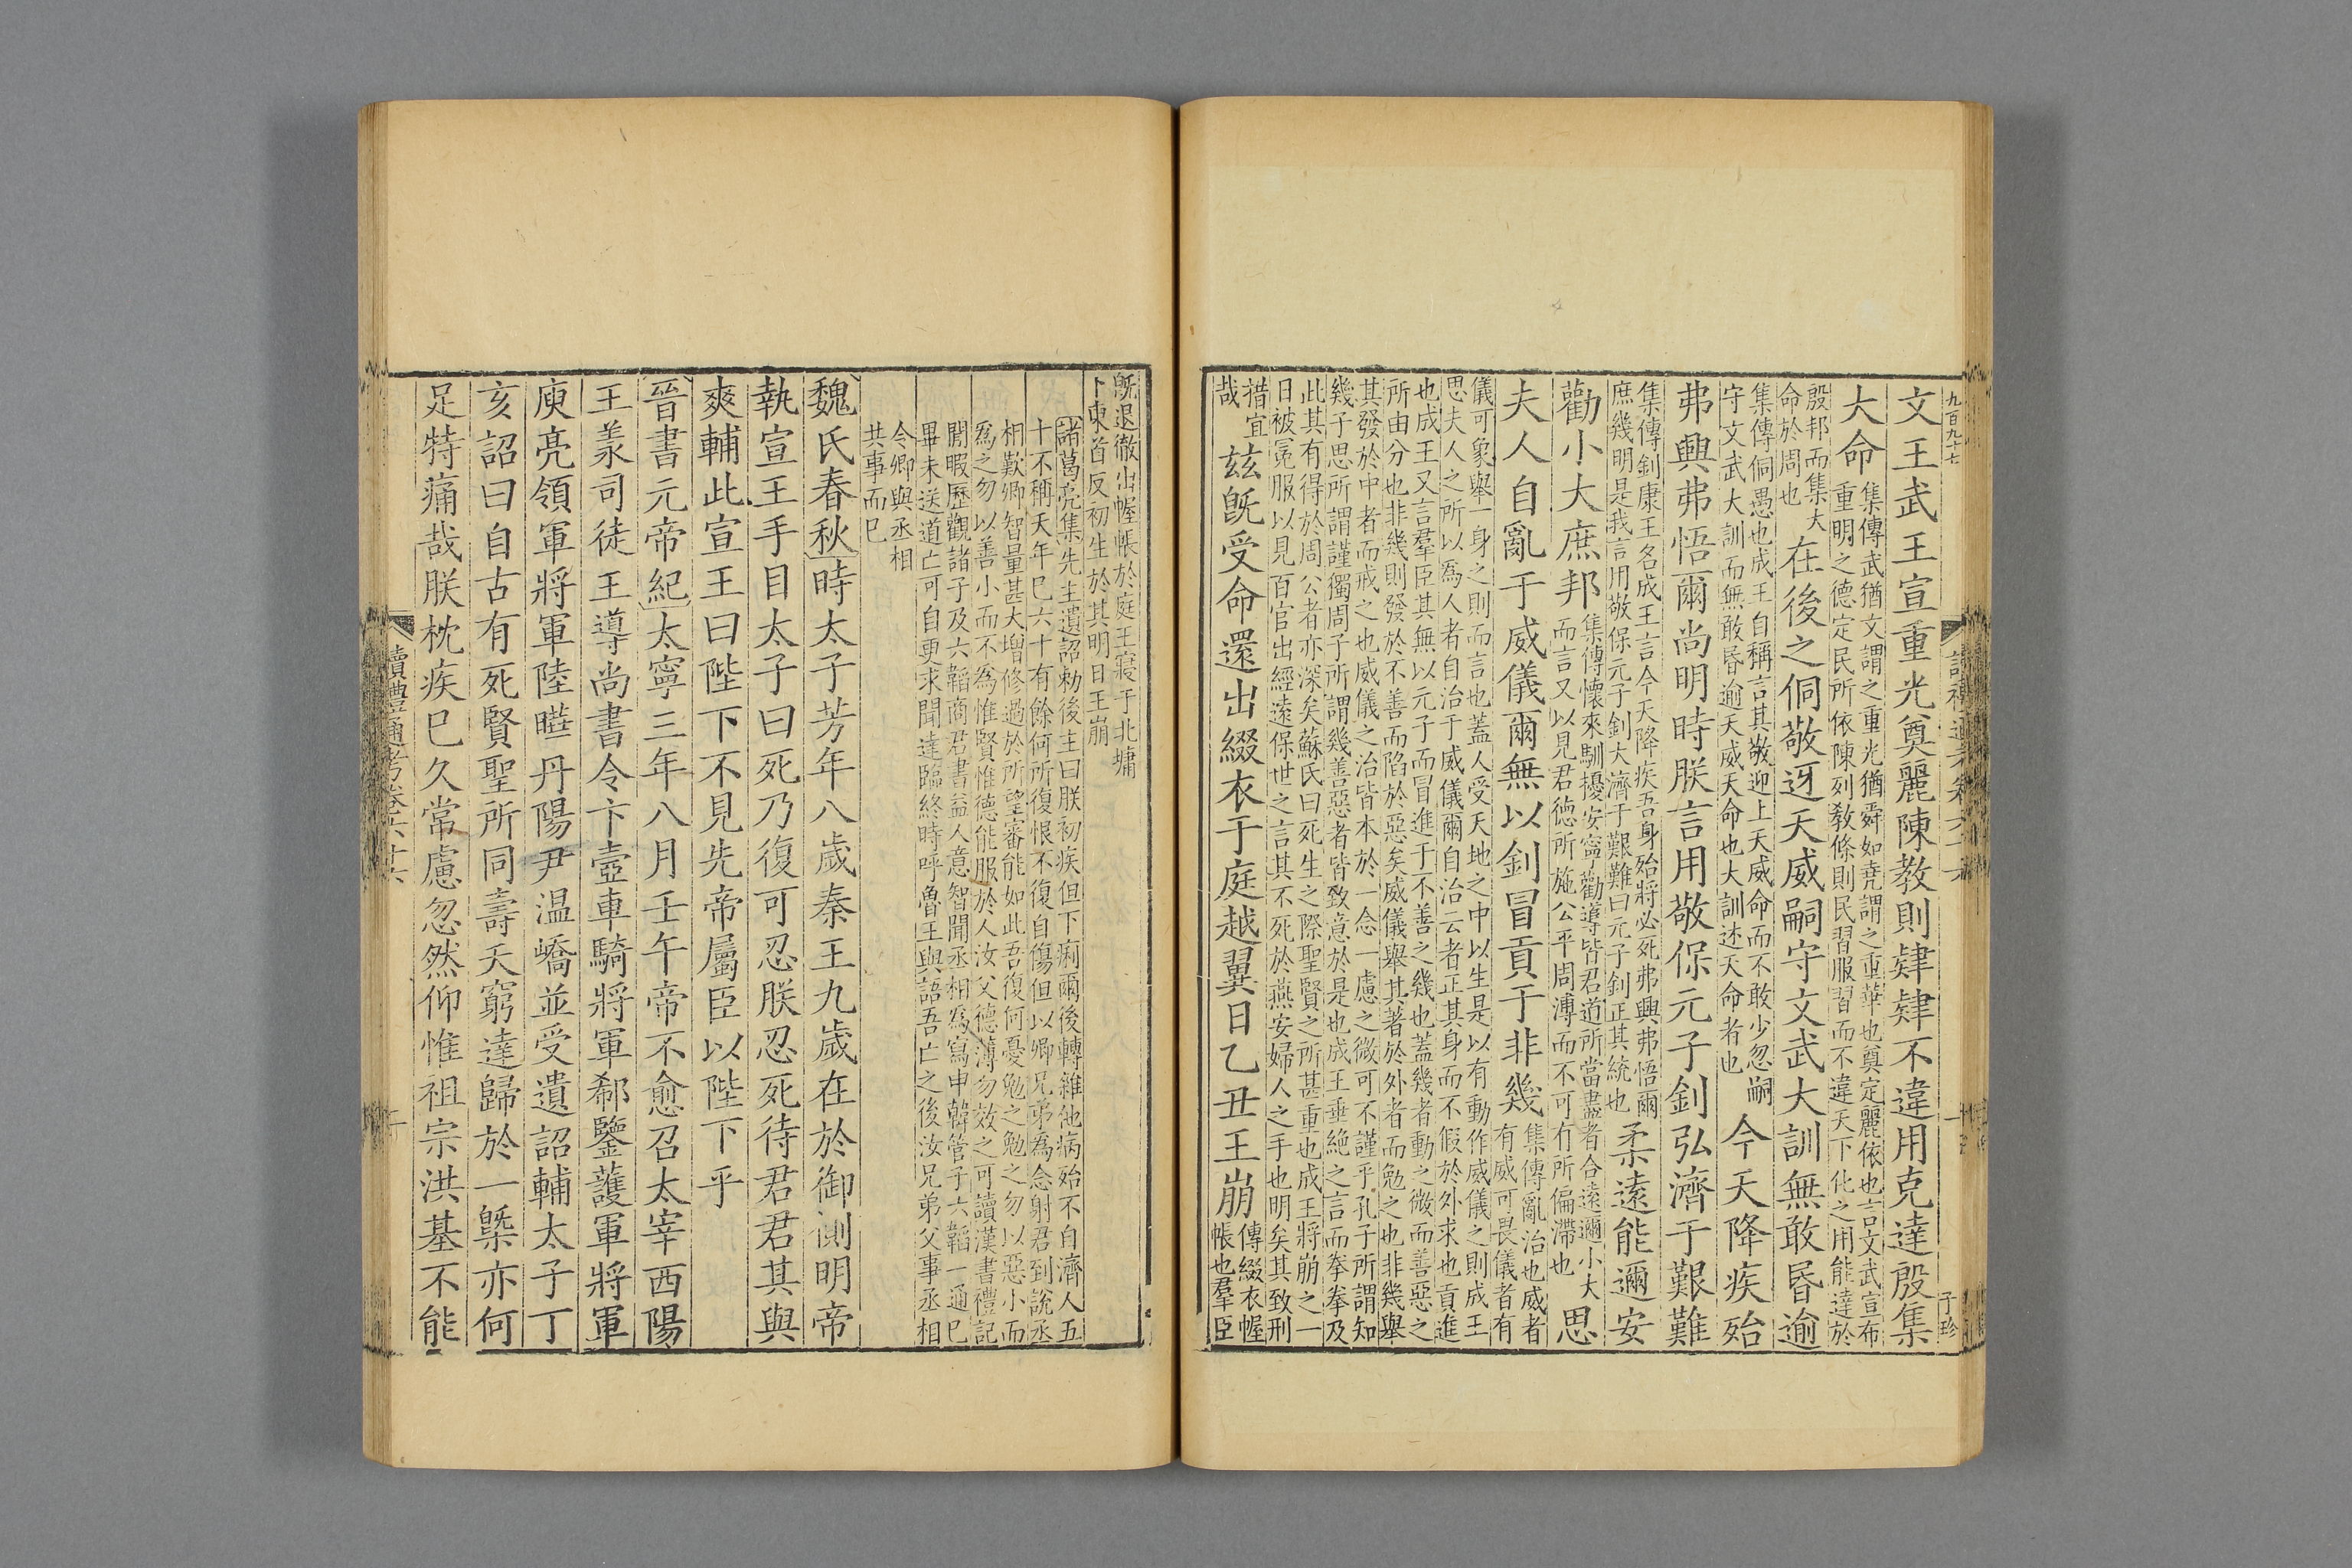 九百九十七
子珍
文王武王宣重光奠麗陳教則肄肄不違用克達殷集
大命
集傳武猶文謂之重光猶舜如堯謂之重華也奠定麗依也言文武宣布
重明之德定民所依陳列敎條則民習服習而不違天下化之用能達於
殷邦而集大
命於周也
在後之侗敬迓天威嗣守文武大訓無敢昬逾
集傳侗愚也成王自稱言其敬迎上天威命而不敢少忽嗣
守文武大訓而無敢昬逾天威天命也大訓述天命者也
今天降疾殆
弗興弗悟爾尚明時朕言用敬保元子釗弘濟于艱難
集傳釗康王名成王言今天降疾吾身殆將必死弗興弗悟爾
庶幾明是我言用敬保元子釗大濟于艱難曰元子釗正其統也
柔遠能邇安
勸小大庶邦
集傳懷來馴擾安寧勸導皆君道所當盡者合遠邇小大
而言又以見君德所施公平周溥而不可有所偏滯也
思
夫人自亂于威儀爾無以釗冒貢于非幾
集傳亂治也威者
有威可畏儀者有
儀可象舉一身之則而言也蓋人受天地之中以生是以有動作威儀之則成王
思夫人之所以爲人者自治于威儀爾自治云者正其身而不假於外求也貢進
也成王又言羣臣其無以元子而冒進于不善之幾也蓋幾者動之微而善惡之
所由分也非幾則發於不善而陷於惡矣威儀舉其著於外者而勉之也非幾舉
其發於中者而戒之也威儀之治皆本於一念一慮之微可不謹乎孔子所謂知
幾子思所謂謹獨周子所謂幾善惡者皆致意於是也成王垂絶之言而拳拳及
此其有得於周公者亦深矣蘇氏曰死生之際聖賢之所甚重也成王將崩之一
日被冕服以見百官出經遠保世之言其不死於燕安婦人之手也明矣其致刑
措宜
哉
茲旣受命還出綴衣于庭越翼日乙丑王崩
傳綴衣幄
帳也羣臣
旣退徹出幄帳於庭王寢于北墉
下東首反初生於其明日王崩
諸葛亮集先主遺詔勑後主曰朕初疾但下痢爾後轉雜他病殆不自濟人五
十不稱夭年巳六十有餘何所復恨不復自傷但以卿兄弟爲念射君到說丞
相歎卿智量甚大增修過於所望審能如此吾復何憂勉之勉之勿以惡小而
爲之勿以善小而不爲惟賢惟德能服於人汝父德薄勿效之可讀漢書禮記
閒暇歷觀諸子及六韜商君書益人意智聞丞相爲寫申韓管子六韜一通巳
畢未送道亡可自更求聞達臨終時呼魯王與語吾亡之後汝兄弟父事丞相
令卿與丞相
共事而巳
魏氏春秋時太子芳年八歲秦王九歲在於御側明帝
執宣王手目太子曰死乃復可忍朕忍死待君君其與
爽輔此宣王曰陛下不見先帝屬臣以陛下乎
晉書元帝紀太寧三年八月壬午帝不愈召太宰西陽
王羕司徒王導尚書令卞壼車騎將軍郗鑒護軍將軍
庾亮領軍將軍陸曄丹陽尹温嶠並受遺詔輔太子丁
亥詔曰自古有死賢聖所同壽夭窮達歸於一槩亦何
足特痛哉朕枕疾巳久常慮忽然仰惟祖宗洪基不能
讀禮通考卷六十六